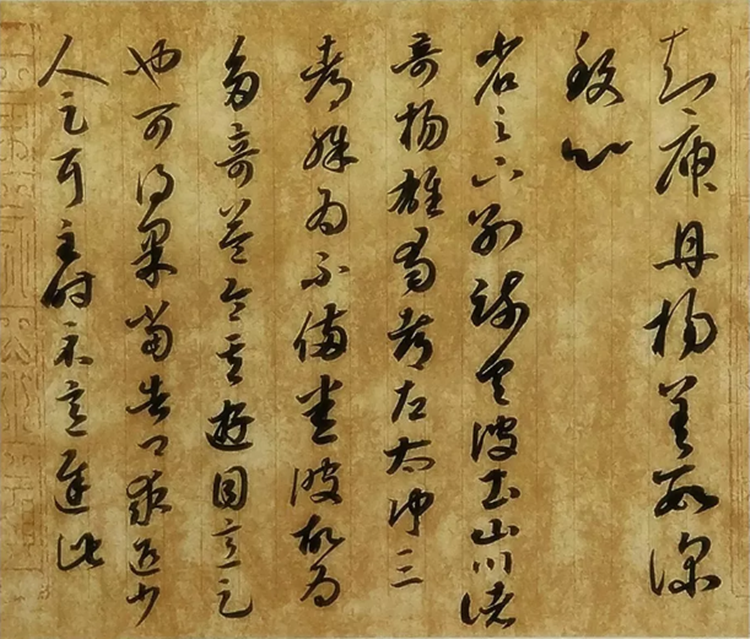 庾丹楊
省足下別疏具彼土山川諸
奇揚雄蜀都左太沖三
都殊為不備悉彼故為
多奇益令其遊目意足
也可得果當告卿求迎少
人足耳至時示意遲此